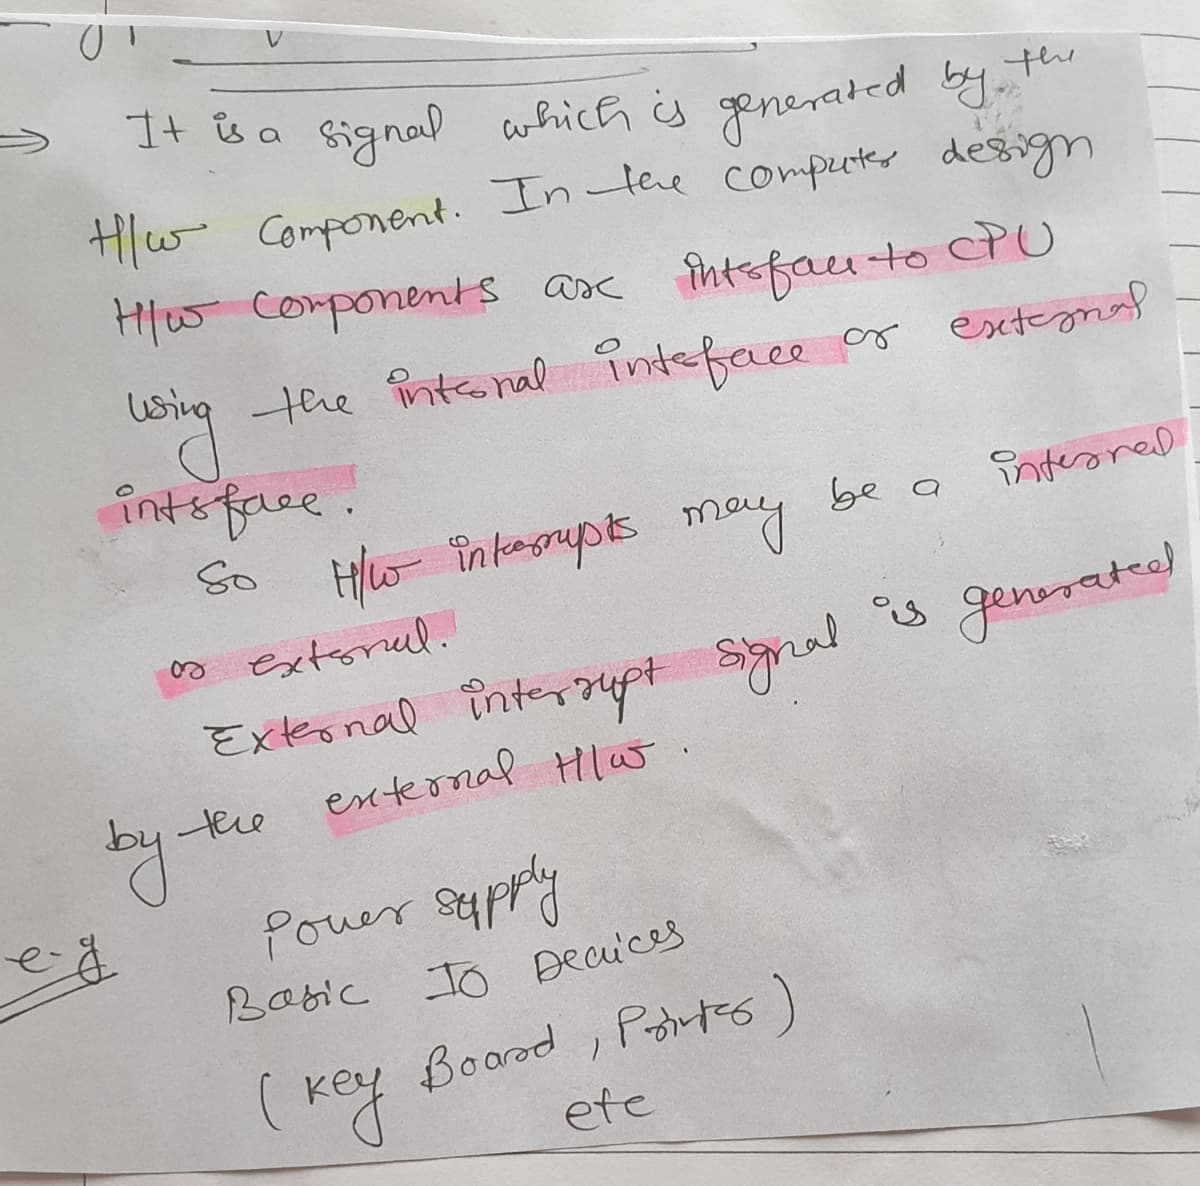 ⇒ It is a signal which is generated by the
H/w Component. In the computer design
H/w Components are interface to CPU
using the internal interface or external
interface.
So H/w interrupts may be a internal
or external.
External interrupt signal is generated
by the external H/w.
e.g Power supply
Basic IO Devices
(Key Board, Printer)
etc